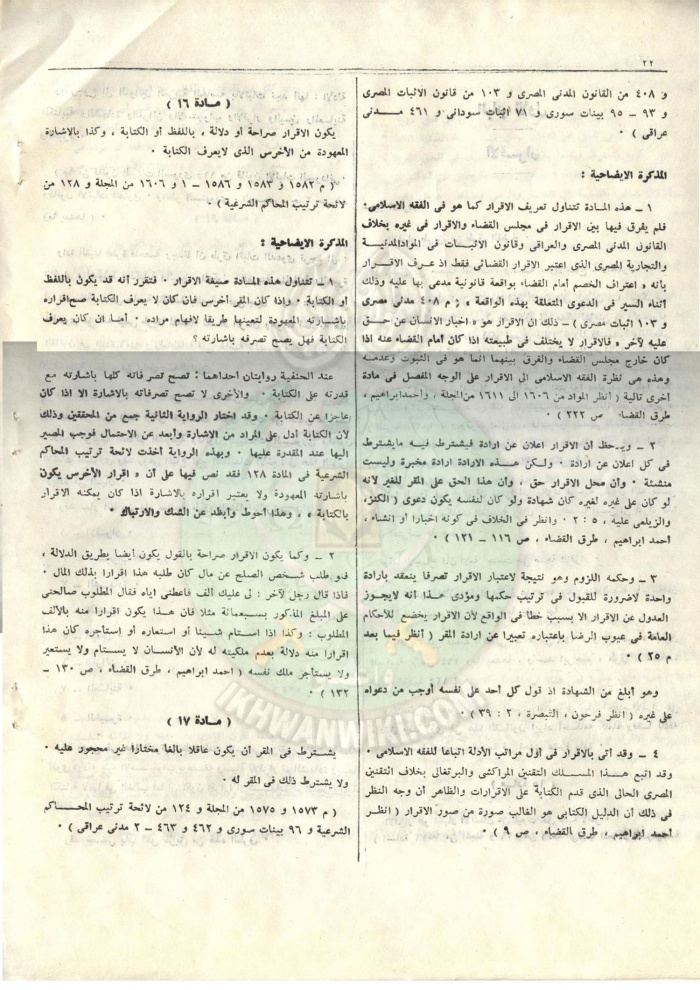 ٢٢
و ٤٠٨ من القانون المدنى المصرى و ١٠٣ من قانون الاثبات المصرى
و ٩٣ – ٩٥ بينات سورى و ٧١ اثبات سودانى و ٤٦١ مدنى
عراقى ) ٠
المذكرة الايضاحية :
١ – هذه المادة تتناول تعريف الاقرار كما هو فى الفقه الاسلامى٠
فلم يفرق فيها بين الاقرار فى مجلس القضاء والاقرار فى غيره بخلاف
القانون المدنى المصرى والعراقى وقانون الاثبات فى الموادالمدنية
والتجارية المصرى الذى اعتبر الاقرار القضائى فقط اذ عرف الاقرار
بأنه « اعتراف الخصم أمام القضاء بواقعة قانونية مدعى بها عليه وذلك
أثناء السير فى الدعوى المتعلقة بهذه الواقعة » ( م ٤٠٨ مدنى مصرى
و ١٠٣ اثبات مصرى ) – ذلك ان الاقرار هو « اخبار الانسان عن حق
عليه لآخر » فالاقرار لا يختلف فى طبيعته اذا كان أمام القضاء عنه اذا
كان خارج مجلس القضاء والفرق بينهما انما هو فى الثبوت وعدمه
وهذه هى نظرة الفقه الاسلامى الى الاقرار على الوجه المفصل فى مادة
أخرى تالية ( أنظر المواد من ١٦٠٦ الى ١٦١١ من المجلة ، وأحمدابراهيم ،
طرق القضاء ص ٢٢٢ ) ٠
٢ – ويلاحظ أن الاقرار اعلان عن ارادة فيشترط فيه مايشترط
فى كل اعلان عن ارادة ٠ ولكن هذه الارادة ارادة مخبرة وليست
منشئة ٠ وأن محل الاقرار حق ، وأن هذا الحق على المقر للغير لأنه
لو كان على غيره لغيره كان شهادة ولو كان لنفسه يكون دعوى ( الكنز،
والزيلعى عليه ، ٥ : ٢ ٠ وانظر فى الخلاف فى كونه اخبارا أو انشاء ،
أحمد ابراهيم ، طرق القضاء ، ص ١١٦ – ١٢١ ) ٠
٣ – وحكمه اللزوم وهو نتيجة لاعتبار الاقرار تصرفا ينعقد بارادة
واحدة لاضرورة للقبول فى ترتيب حكمها ومؤدى هذا انه لايجوز
العدول عن الاقرار الا بسبب خطأ فى الواقع لأن الاقرار يخضع للأحكام
العامة فى عيوب الرضا باعتباره تعبيرا عن ارادة المقر ( أنظر فيما بعد
م ٢٥ ) ٠
وهو أبلغ من الشهادة اذ قول كل أحد على نفسه أوجب من دعواه
على غيره ( انظر فرحون ، التبصرة ، ٢ : ٣٩ ) ٠
٤ – وقد أتى بالاقرار فى أول مراتب الأدلة اتباعا للفقه الاسلامى ٠
وقد اتبع هذا المسلك التقنين المراكشى والبرتغالى بخلاف التقنين
المصرى الحالى الذى قدم الكتابة على الاقرارات والظاهر أن وجه النظر
فى ذلك أن الدليل الكتابى هو الغالب صورة من صور الاقرار ( انظر
أحمد ابراهيم ، طرق القضاء ، ص ٩ ) ٠
( مادة ١٦ )
يكون الاقرار صراحة أو دلالة ، باللفظ أو الكتابة ، وكذا بالاشارة
المعهودة من الأخرس الذى لايعرف الكتابة ٠
( م ١٥٨٢ و ١٥٨٣ و ١٥٨٦ – ١ و ١٦٠٦ من المجلة و ١٢٨ من
لائحة ترتيب المحاكم الشرعية ) ٠
المذكرة الايضاحية :
١ – تتناول هذه المادة صيغة الاقرار ٠ فتقرر أنه قد يكون باللفظ
أو الكتابة ٠ واذا كان المقر أخرس فان كان لا يعرف الكتابة صح اقراره
باشارته المعهودة لتعينها طريقا لافهام مراده ٠ أما ان كان يعرف
الكتابة فهل يصح تصرفه باشارته ؟
عند الحنفية روايتان احداهما : تصح تصرفاته كلها باشارته مع
قدرته على الكتابة ٠ والأخرى لا تصح تصرفاته بالاشارة الا اذا كان
عاجزا عن الكتابة ٠ وقد اختار الرواية الثانية جمع من المحققين وذلك
لأن الكتابة أدل على المراد من الاشارة وأبعد عن الاحتمال فوجب المصير
اليها عند المقدرة عليها ٠ وبهذه الرواية أخذت لائحة ترتيب المحاكم
الشرعية فى المادة ١٢٨ فقد نص فيها على أن « اقرار الأخرس يكون
باشارته المعهودة ولا يعتبر اقراره بالاشارة اذا كان يمكنه الاقرار
بالكتابة » ، وهذا أحوط وأبعد عن الشك والارتباك ٠
٢ – وكما يكون الاقرار صراحة بالقول يكون أيضا بطريق الدلالة ،
فلو طلب شخص الصلح عن مال كان طلبه هذا اقرارا بذلك المال ٠
فاذا قال رجل لآخر : لى عليك الف فاعطنى اياه فقال المطلوب صالحنى
على المبلغ المذكور بسبعمائة مثلا فان هذا يكون اقرارا منه بالألف
المطلوب : وكذا اذا استام شيئا أو استعاره أو استأجره كان هذا
اقرارا منه دلالة بعدم ملكيته له لأن الأنسان لا يستام ولا يستعير
ولا يستأجر ملك نفسه ( أحمد ابراهيم ، طرق القضاء ، ص ١٣٠ –
١٣٢ ) ٠
( مادة ١٧ )
يشترط فى المقر أن يكون عاقلا بالغا مختارا غير محجور عليه ٠
ولا يشترط ذلك فى المقر له ٠
( م ١٥٧٣ و ١٥٧٥ من المجلة و ١٢٤ من لائحة ترتيب المحاكم
الشرعية و ٩٦ بينات سورى و ٤٦٢ و ٤٦٣ – ٢ مدنى عراقى ) ٠
IKHWANWIKI.COM